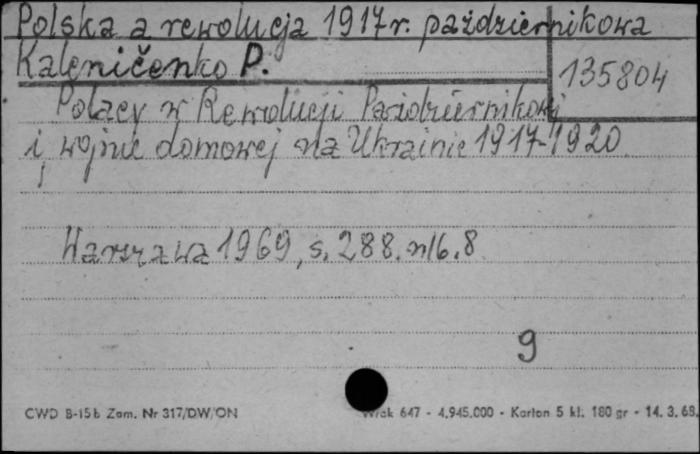 Polska a rewolucja 1917 r. październikowa
Kaleničenko P.
135804
Polacy w Rewolucji Październikowej
i wojnie domowej na Ukrainie 1917-1920
Warszawa 1969, s. 288. nlb. 8
9
CWD B-15b Zam. Nr 317/DW/ON
Wrak 647 - 4.945.000 - Karton 5 kl. 180 gr - 14. 3. 68.